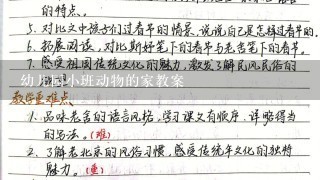 的特点。
5. 对比文中孩子们过春节的情景,说说自己是怎样过春节的。
6. 拓展阅读,对比斯妤笔下的春节与老舍笔下的春节。
7. 感受祖国传统文化的魅力,激发了解民风民俗的
幼儿园小班动物的家教案
教学重难点
1. 品味老舍的语言风格,学习课文有顺序、详略得当
的写法。(难)
2. 了解老北京的风俗习惯,感受传统年文化的独特
魅力。(重)